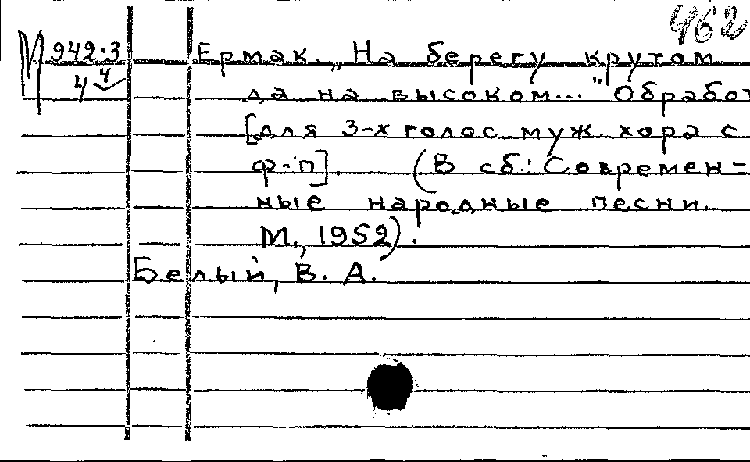 462
942.3 Ермак. „На берегу крутом
4 4 да на высоком..." Обработ
[для 3-х голос муж. хора с
ф-п]. (В сб.: Современ=
ные народные песни.
М., 1952).
Белый, В. А.